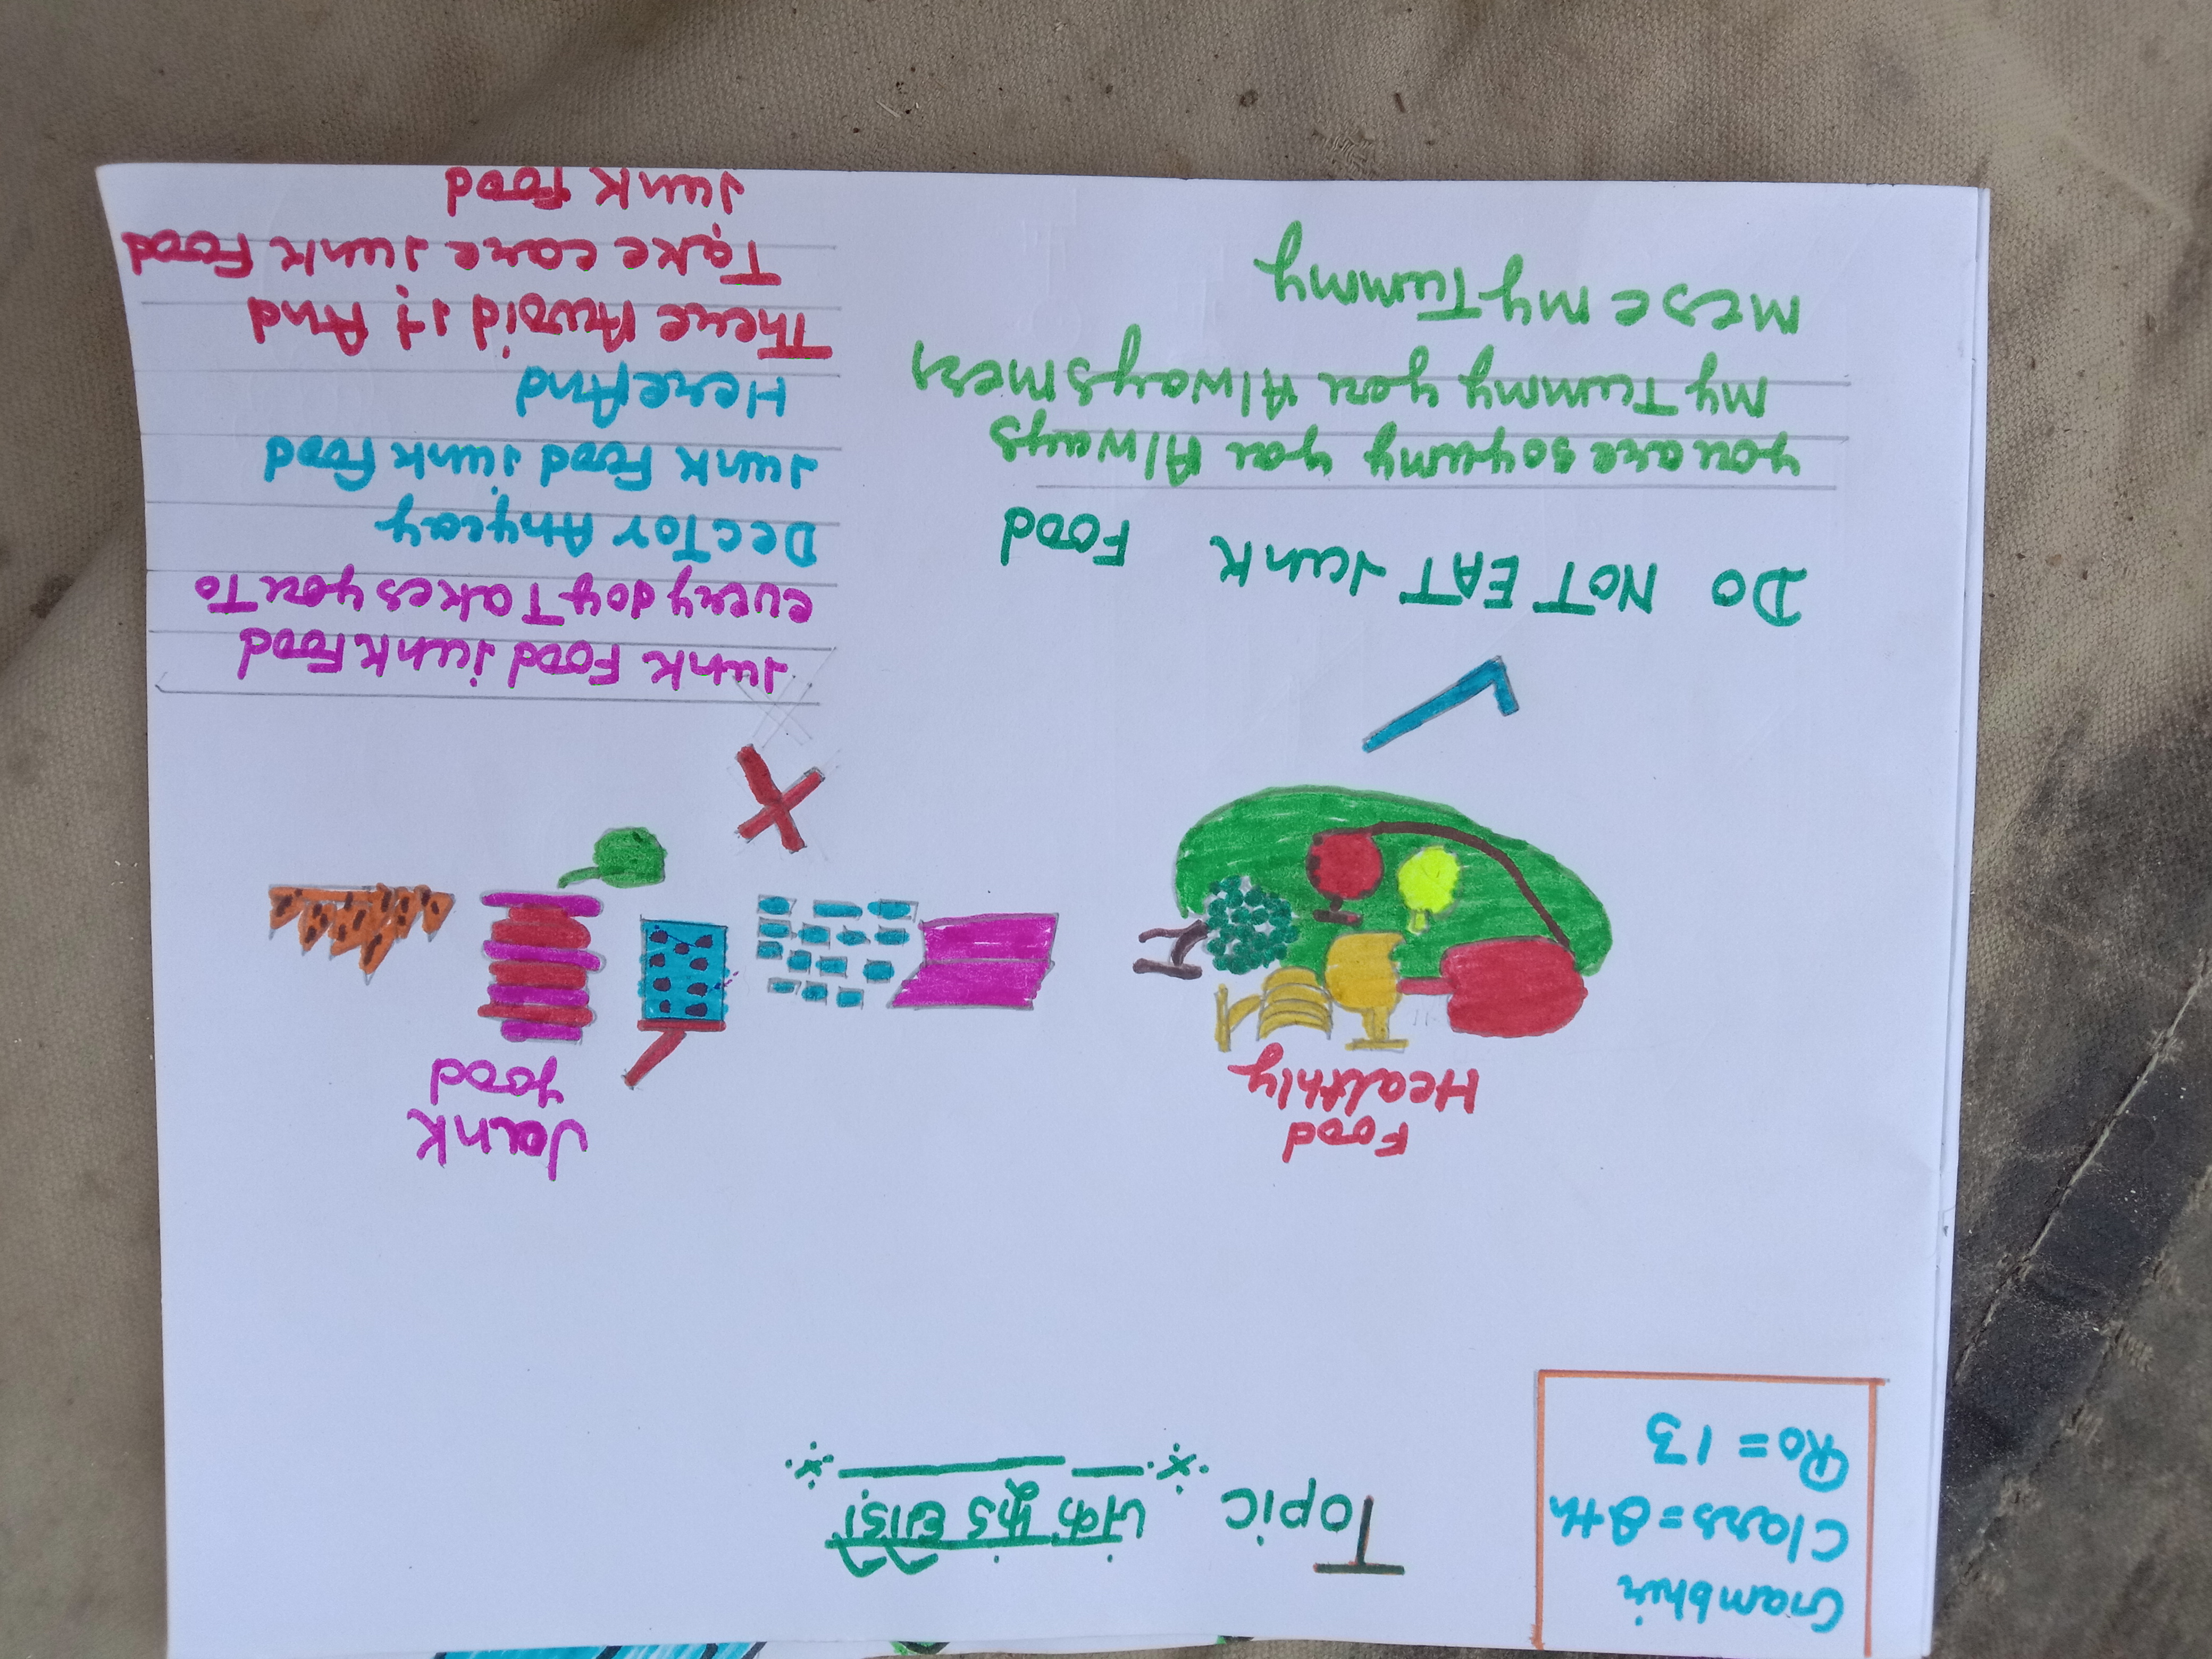 Gambhir
Class = 8th
Ro = 13
Topic जंक फूड छोड़ो
Food
Healthly
Junk
food
DO NOT EAT Junk Food
you are so yumy you Always
my Tummy you Always mess
mess my Tummy
Junk Food junk Food
every doy Takes you To
Junk Food junk Food
Here And
There Avoid it And
Take care junk Food
Junk Food